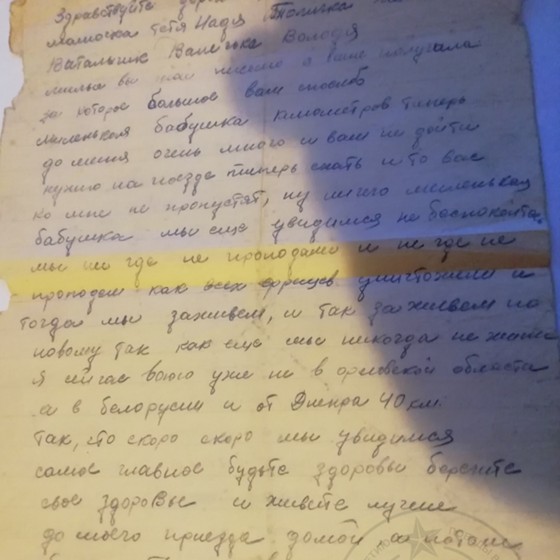 Здравствуйте
мамочка тетя Надя Толичка
Виталик Валечька Володя
милые вы мои письмо я ваше получила
за которое большое вам спасибо
миленькая бабушка километров типерь
до меня очень много и вам не дойти
нужно на поезде типерь ехать и то вас
ко мне не пропустят, ну ничего миленькая
бабушка мы еще увидимся не беспокойтесь
мы ни где не пропадали и не где не
проподем как всех фрицев уничтожим и
тогда мы заживем, и так заживем по
новому так как еще мы никогда не жили
Я сичас воюю уже не в орловской области
а в белорусии и от Днепра 40 км.
так, что скоро скоро мы увидимся
самое главное будьте здоровы берегите
свое здоровье и живите лучше
до моего приезда домой а потом